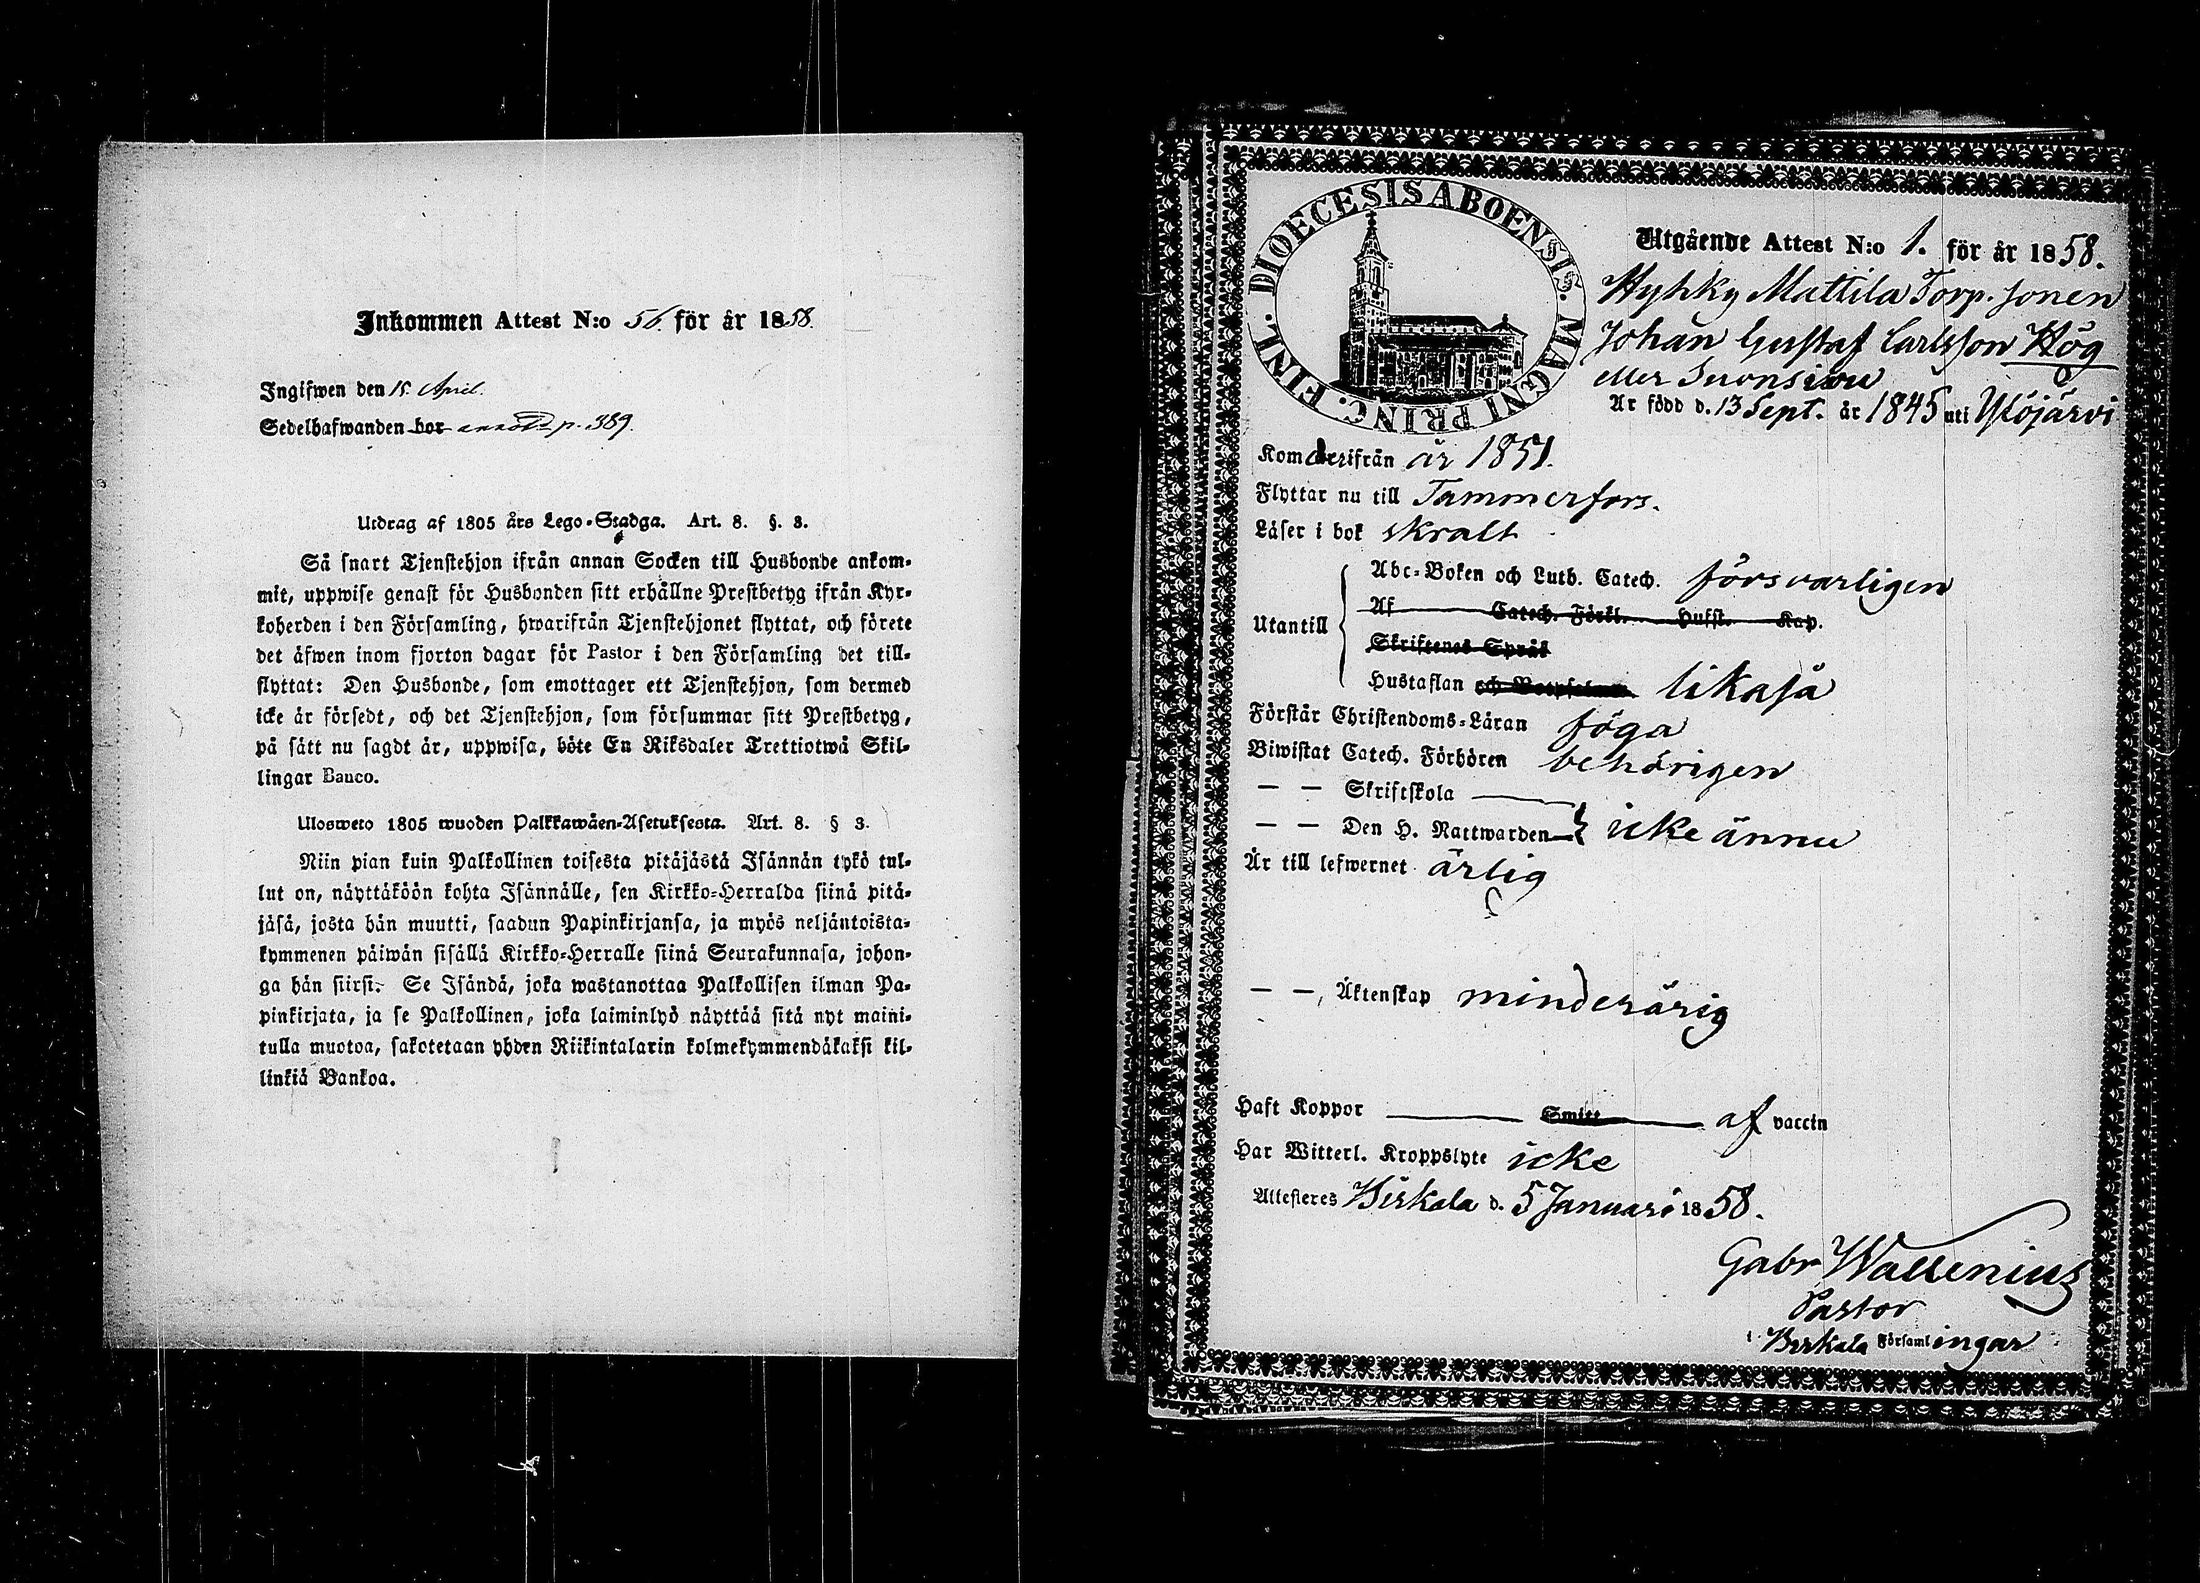 Inkommen Attest N:o 56. för år 1858.
Ingifwen den 15. April.
Sedelhafwanden bor p. 389.
Utdrag af 1805 års Lego-Stadga. Art. 8. §. 3.
Så snart Tjenstehjon ifrån annan Socken till Husbonde ankom-
mit, uppwise genast för Husbonden sitt erhållne Prestbetyg ifrån Kyr-
koherden i den Församling, hwarifrån Tjenstehjonet flyttat, och förete
det äfwen inom fjorton dagar för Pastor i den Församling det till-
flyttat: Den Husbonde, som emottager ett Tjenstehjon, som dermed
icke är försedt, och det Tjenstehjon, som försummar sitt Prestbetyg,
på sätt nu sagdt är, uppwisa, böte En Riksdaler Trettiotwå Skil-
lingar Banco.
Ulosweto 1805 wuoden Palkkawäen-Asetuksesta. Art. 8. § 3.
Niin pian kuin Palkollinen toisesta pitäjästä Isännän tykö tul-
lut on, näyttäköön kohta Isännälle, sen Kirkko-Herralda siinä pitä-
jäsä, josta hän muutti, saadun Papinkirjansa, ja myös neljäntoista-
kymmenen päiwän sisällä Kirkko-Herralle siinä Seurakunnasa, johon-
ga hän siirsi. Se Isändä, joka wastanottaa Palkollisen ilman Pa-
pinkirjata, ja se Palkollinen, joka laiminlyö näyttää sitä nyt maini-
tulla muotoa, sakotetaan yhden Riikintalarin kolmekymmendäkaksi kil-
linkiä Bankoa.
DIOECESIS ABOENSIS. MAGNI PRINC. FINL.
Utgående Attest N:o 1. för år 1858.
Hyhky Mattila Torp. sonen
Johan Gustaf Carlsson Hög
eller Suonsivu
Är född d. 13 Sept. år 1845 uti Ylöjärvi
Kom derifrån år 1851.
Flyttar nu till Tammerfors.
Läser i bok skralt
Utantill
Abc-Boken och Luth. Catech. försvarligen
Af Catech. Förkl. Hufst. Kap.
Skriftenes Språk
Hustaflan och likaså
Förstår Christendoms-Läran föga
Biwistat Catech. Förhören behörigen
— — Skriftskola
— — Den H. Nattwarden icke ännu
Är till lefwernet ärlig
— —, Äktenskap minderårig
Haft Koppor Smitt af vaccin
Har Witterl. Kroppslyte icke
Attesteres Birkala d. 5 Januari 1858.
Gabr Wallenius
Pastor
i Birkala Församlingar